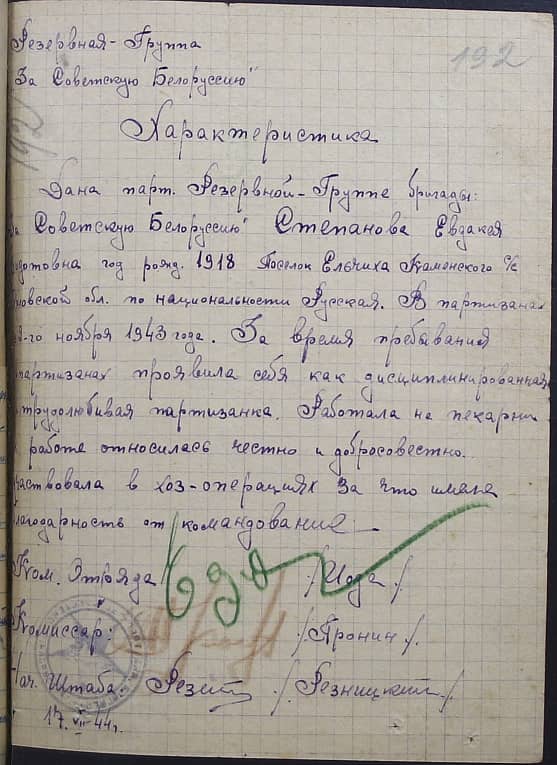 Резервная-Группа
192
За Советскую Белоруссию"
192
Характеристика
Дана парт. Резервной-Группе бригады:
За Советскую Белоруссию" Степанова Евдакея
год рожд. 1918 Поселок Ельчиха Каменского с/с
обл. по национальности Русская. В партизанах
ноября 1943 года. За время пребывания
партизанах проявила себя как дисциплинированная
трудолюбивая партизанка. Работала на пекарни
к работе относилась честно и добросовестно.
участвовала в хоз-операциях За что имела
благодарность от командование
Ком. Отряда /Иода/
Комиссар: /Пронин/
Нач. Штаба. /Резницкий/
17.VII-44г.